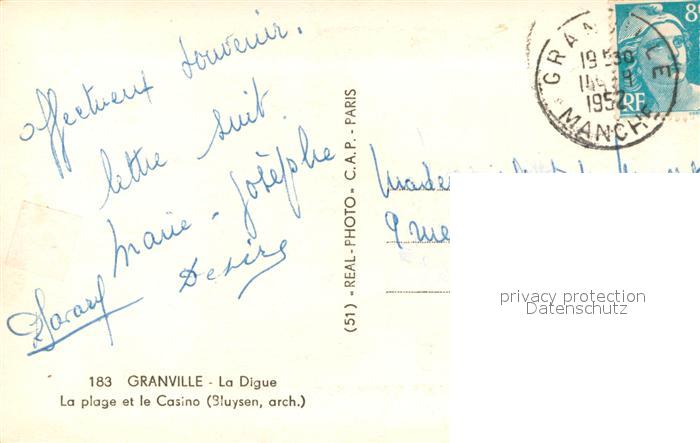 affectueux souvenir.
lettre suit.
Marie-Josèphe
Désiré
183 GRANVILLE - La Digue
La plage et le Casino (Bluysen, arch.)
(51) - REAL-PHOTO - C.A.P. - PARIS
GRANVILLE
19 30
14
1952
MANCHE
8
RF
rue
privacy protection
Datenschutz